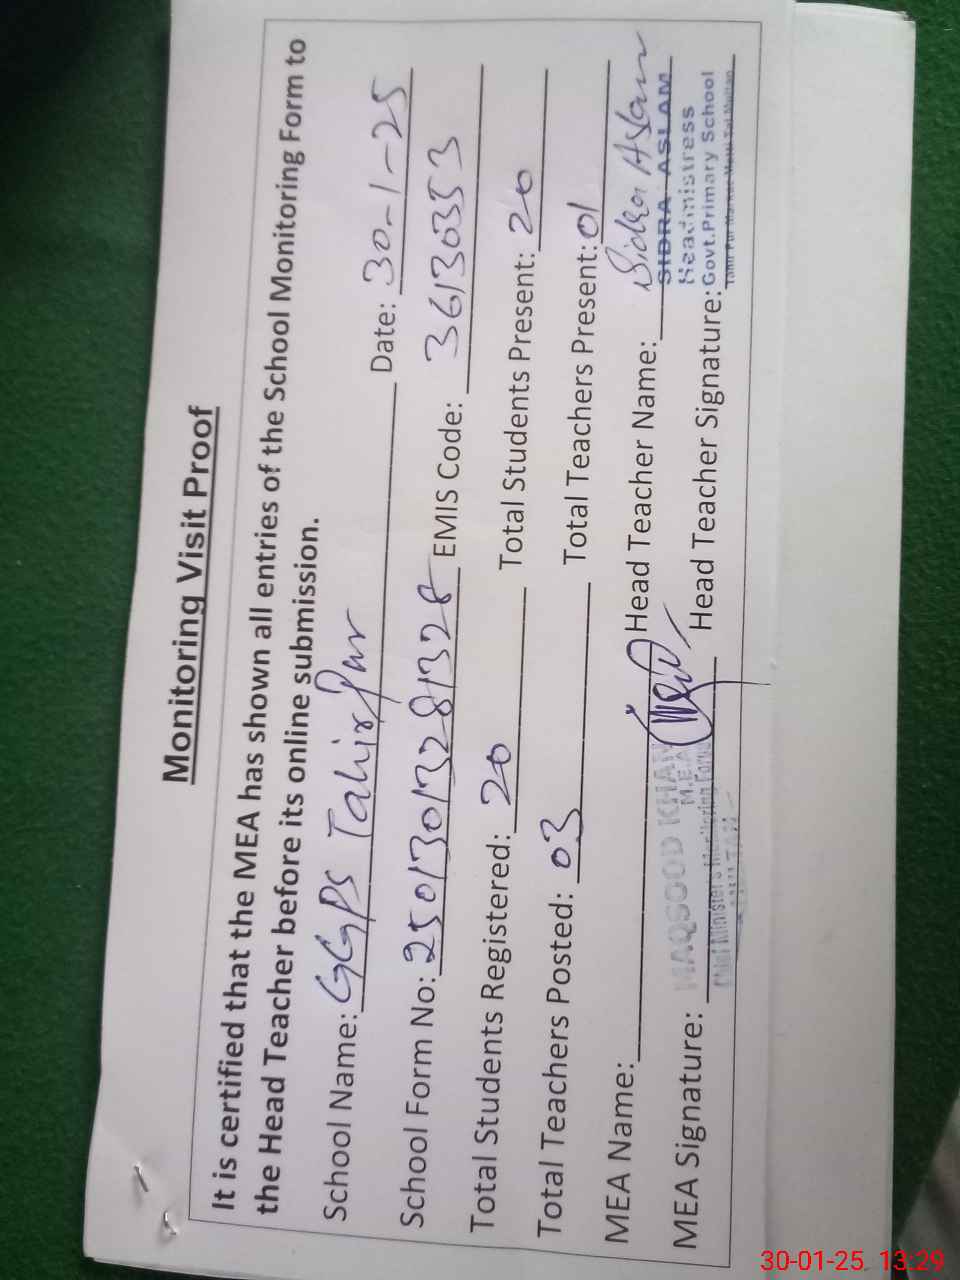 Monitoring Visit Proof
It is certified that the MEA has shown all entries of the School Monitoring Form to
the Head Teacher before its online submission.
School Name: GGPS Tahirpur Date: 30-1-25
School Form No: 25013013281328 EMIS Code: 36130353
Total Students Registered: 20 Total Students Present: 20
Total Teachers Posted: 03 Total Teachers Present: 01
MEA Name: Head Teacher Name: Sidra Aslam
SIDRA ASLAM
MAQSOOD KHAN Headmistress
M.E.A
MEA Signature: Chief Minister's Monitoring Force Head Teacher Signature: Govt.Primary School
30-01-25, 13:29